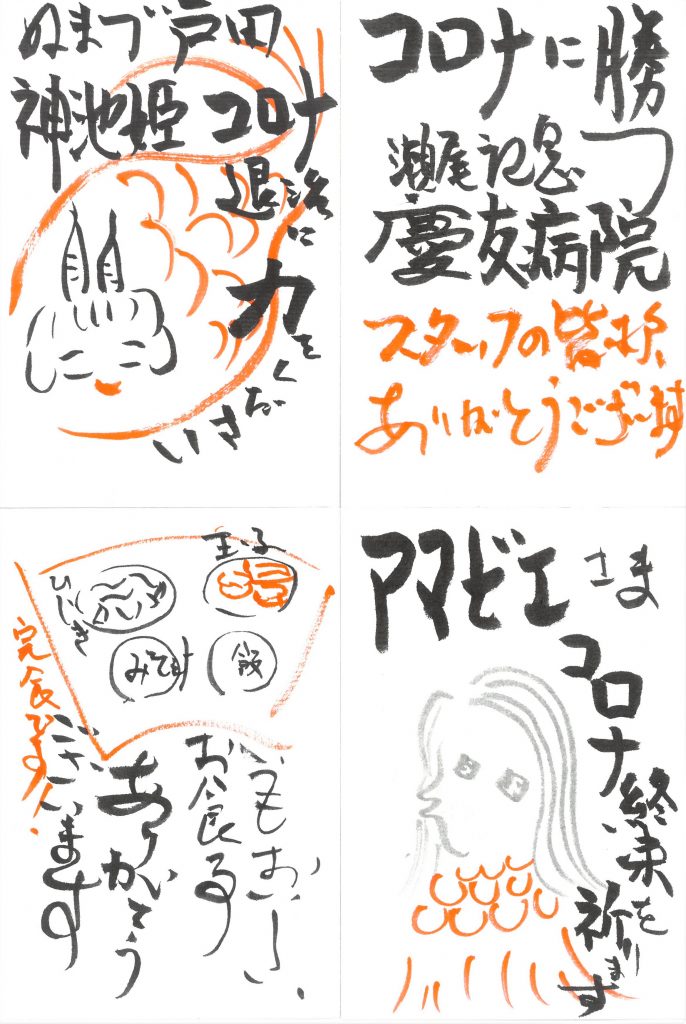 ぬまづ戸田
神池姫 コロナ
退治に
力をください
コロナに勝つ
瀬尾記念
慶友病院
スタッフの皆様、
ありがとうございます
玉子
ひじき
みそ汁
飯
完食です!
いつもおいしい、
お食事
ありがとう
ございます
アマビエさま
コロナ
終束を
祈ります